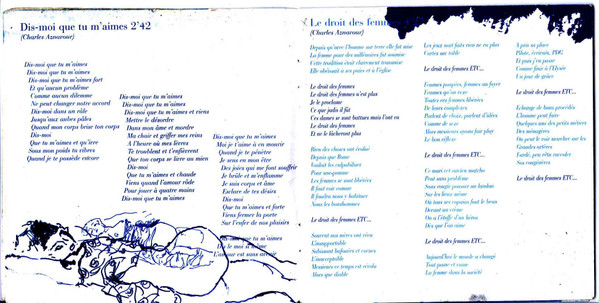 Dis-moi que tu m'aimes 2'42
(Charles Aznavour)
Dis-moi que tu m'aimes
Dis-moi que tu m'aimes
Dis-moi que tu m'aimes fort
Et qu'aucun problème
Comme aucun dilemme
Ne peut changer notre accord
Dis-moi dans un râle
Jusqu'aux aubes pâles
Quand mon corps brise ton corps
Dis-moi
Que tu m'aimes et qu'hier
Sous mon poids tu vibres
Quand je te possède encore
Dis-moi que tu m'aimes
Dis-moi que tu m'aimes
Dis-moi que tu m'aimes et viens
Mettre le désordre
Dans mon âme et mordre
Ma chair et griffer mes reins
A l'heure où mes lèvres
Te troublent et t'enfièvrent
Que ton corps se livre au mien
Dis-moi
Que tu m'aimes et chaude
Viens quand l'amour rôde
Pour jouer à quatre mains
Dis-moi que tu m'aimes
Dis-moi que tu m'aimes
Moi je t'aime à en mourir
Quand je te pénètre
Je sens en mon être
Des joies qui me font souffrir
Je brûle et m'enflamme
Je suis corps et âme
Esclave de tes désirs
Dis-moi
Que tu m'aimes et forte
Viens fermer la porte
Sur l'enfer de nos plaisirs
Dis-moi que tu m'aimes
Dis le moi si même
L'amour est sans avenir
Le droit des femmes
(Charles Aznavour)
Depuis qu'avec l'homme sur terre elle fut mise
La femme passe des millénaires fut soumise
Cette tradition était chèrement transmise
Elle obéissait à ses pairs et à l'Eglise
Le droit des femmes
Le droit des femmes n'est plus
Je le proclame
Ce que jadis il fut
Ces dames se sont battues mais l'ont eu
Le droit des femmes
Et ne le lâcheront plus
Bien des choses ont évolué
Depuis que Rome
Voulait les culpabiliser
Pour une pomme
Les femmes se sont libérées
Il faut voir comme
Il faudra nous y habituer
Nous les bonshommes
Le droit des femmes ETC...
Souvent nos mères ont vécu
L'insupportable
Subissant bafouées et cocues
L'inacceptable
Messieurs ce temps est révolu
Alors que diable
Les jeux sont faits rien ne va plus
Cartes sur table
Le droit des femmes ETC...
Femmes poupées, femmes au foyer
Femmes qu'on viole
Toutes ces femmes libérées
De leurs complexes
Parlent de choix, parlent d'idées
Comme de sexe
Alors messieurs ayons fair play
Le bon réflexe
Le droit des femmes ETC...
Ce mari est ancien macho
Peut sans problème
Sans rougir pousser un landau
Sur les lieux même
Où tous ces copains font le beau
Devant un crème
On a l'étoffe d'un héros
Dès que l'on aime
Le droit des femmes ETC...
Aujourd'hui le monde a changé
Tout passe et casse
La femme dans la société
A pris sa place
Pilote, écrivain, PDG
Et puis j'en passe
Comme finir à l'Elysée
Un jour de grâce
Le droit des femmes ETC...
Echange de bons procédés
L'homme peut faire
Quelques uns des petits métiers
Des ménagères
On peut le voir marcher sur les
Grandes artères
Fardé, peu vêtu raccoler
Ses congénères
Le droit des femmes ETC...